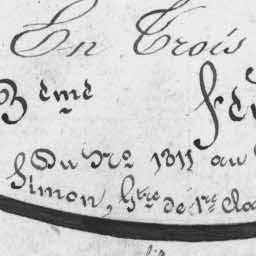 En Trois
3ème fe
Du No 1311 au
Simon, htre de 1re cla